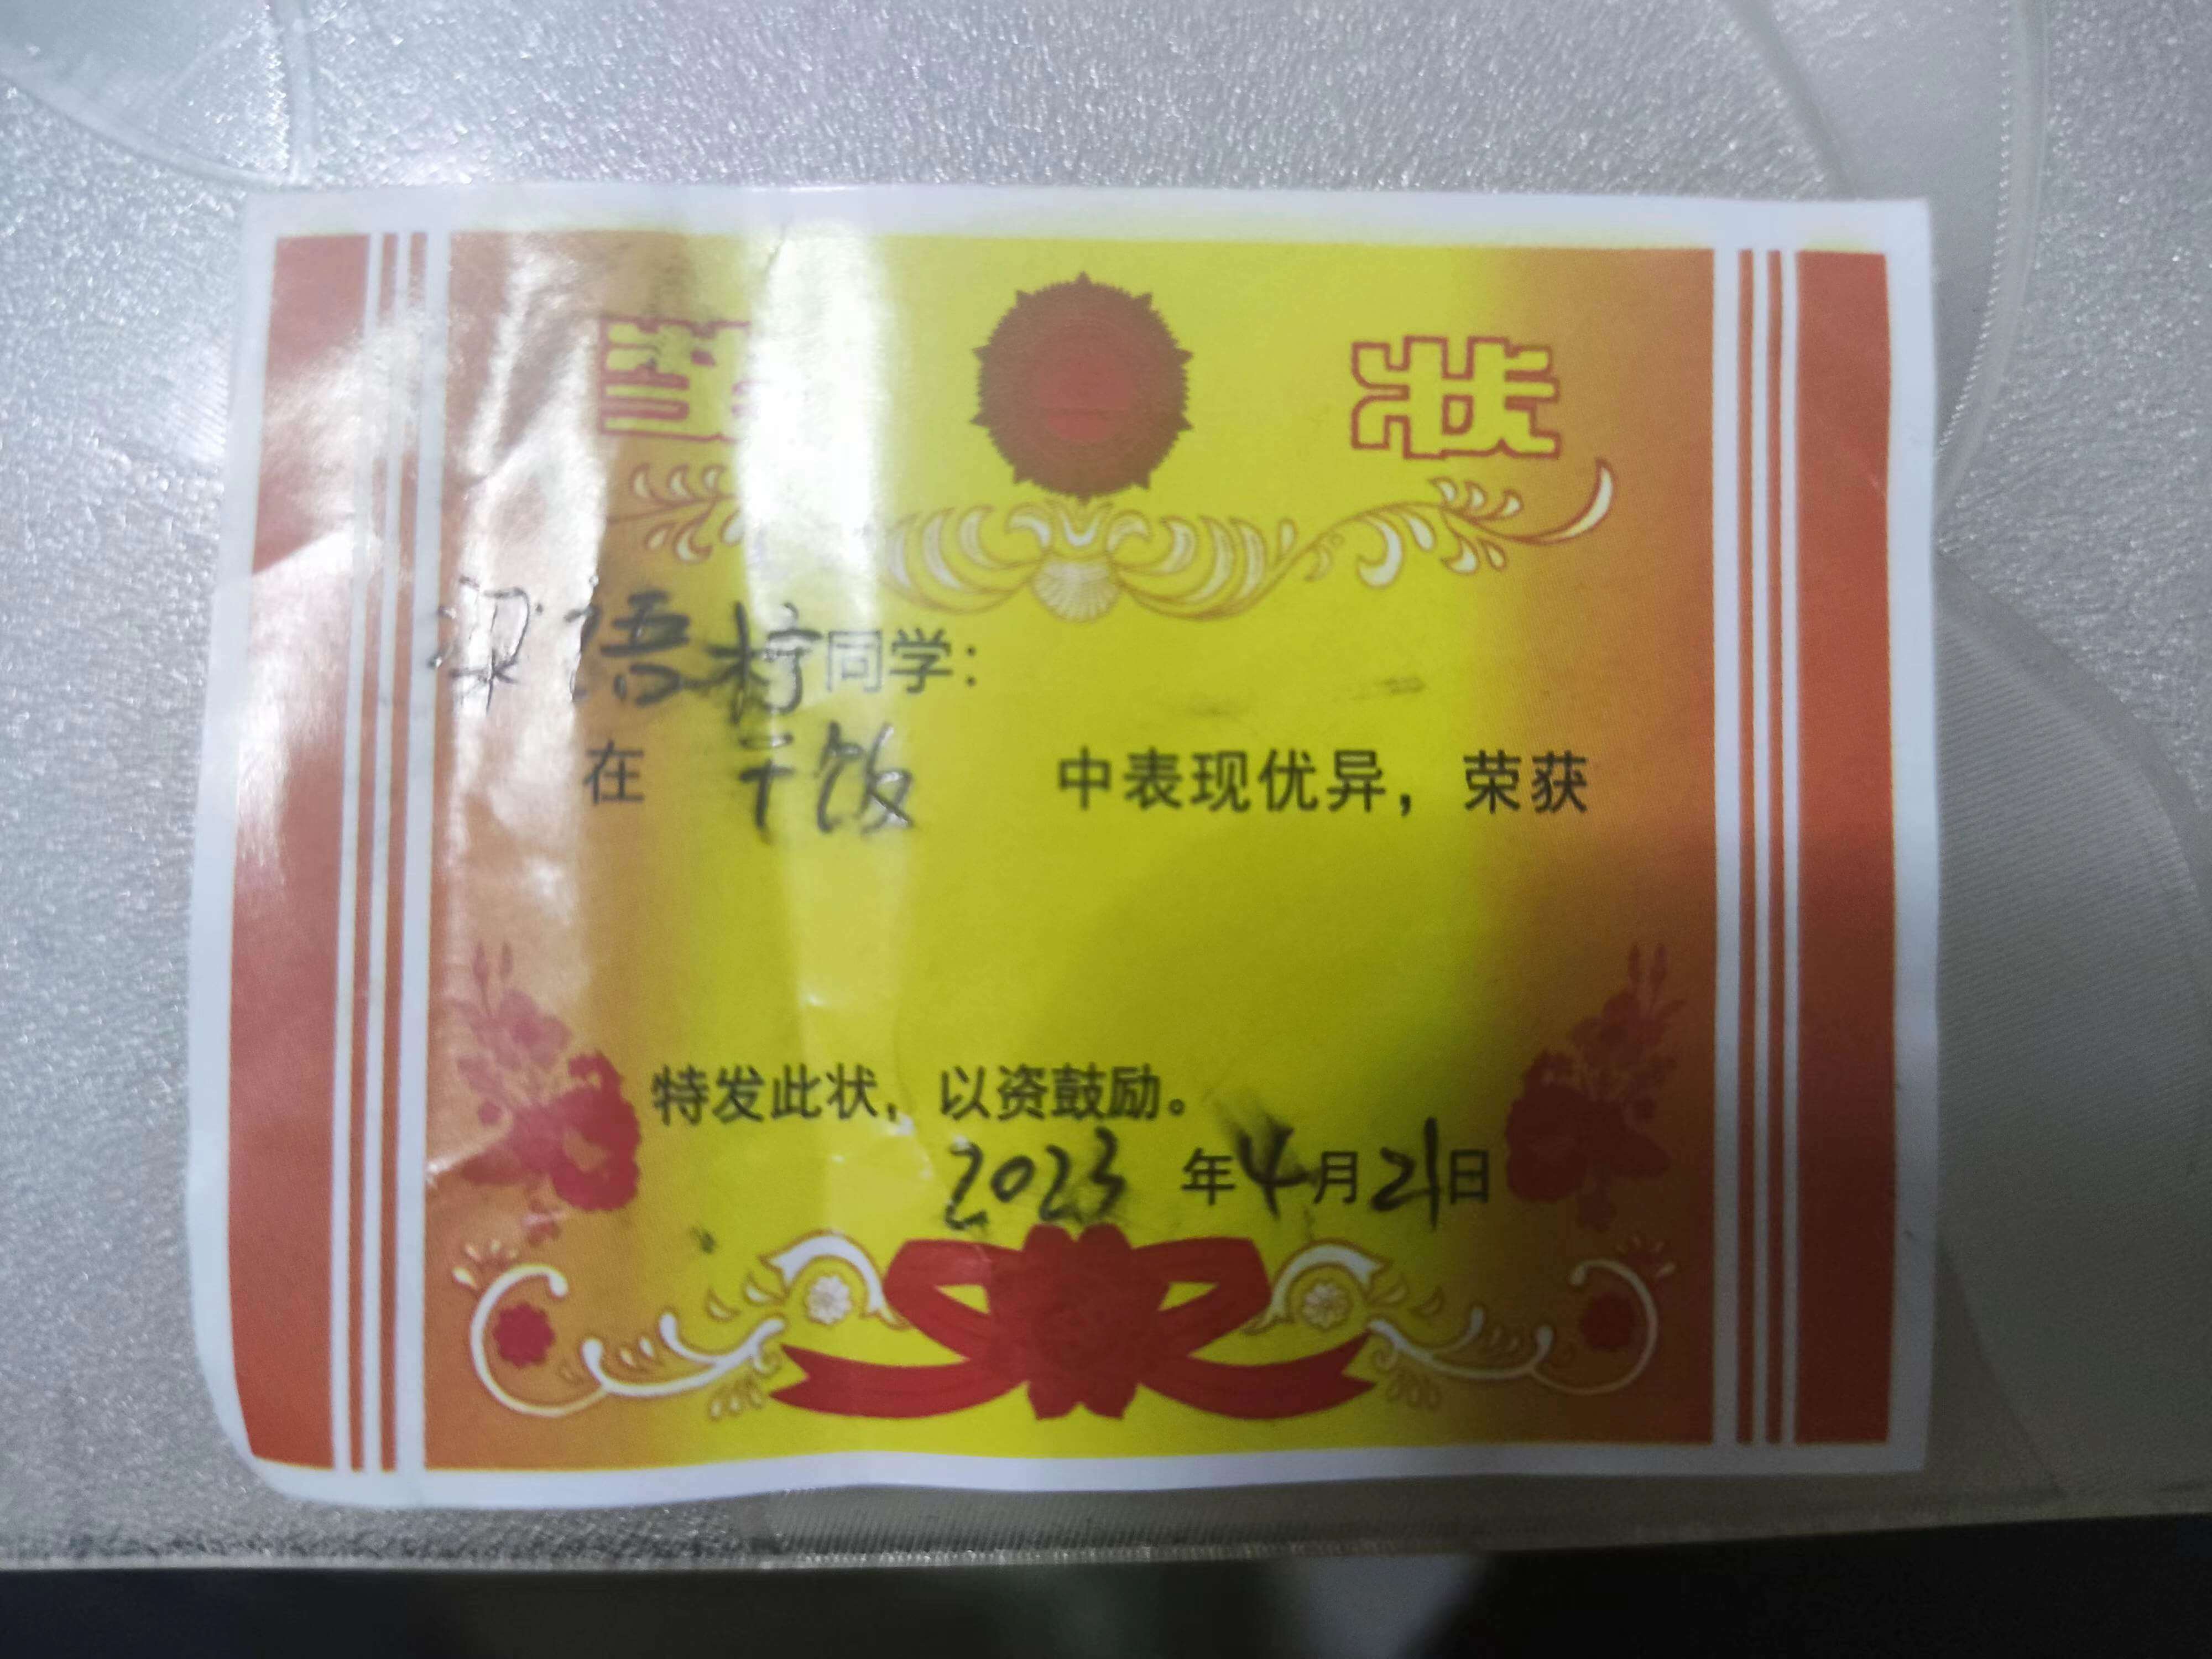 状
语柠同学：
在 干饭 中表现优异，荣获
特发此状，以资鼓励。
2023 年4月21日